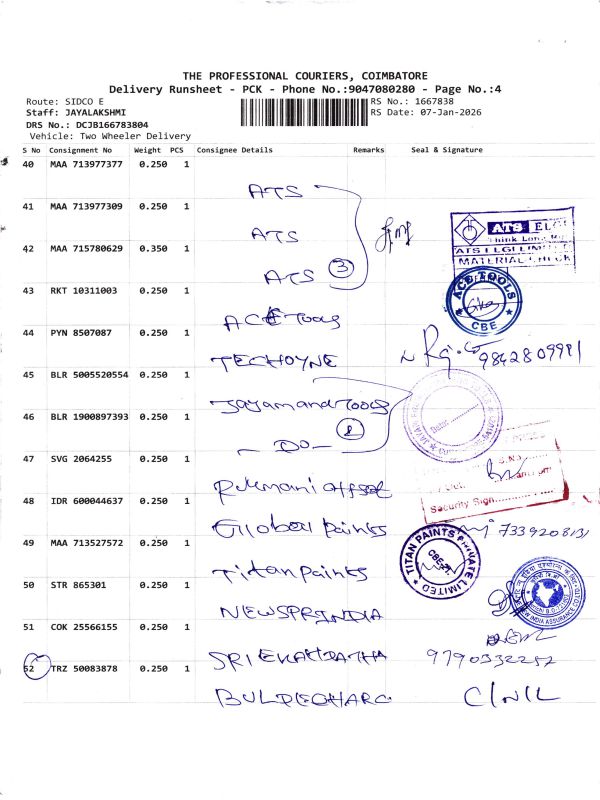 THE PROFESSIONAL COURIERS, COIMBATORE
Delivery Runsheet - PCK - Phone No.:9047080280 - Page No.:4
Route: SIDCO E
RS No.: 1667838
Staff: JAYALAKSHMI
RS Date: 07-Jan-2026
DRS No.: DCJB166783804
Vehicle: Two Wheeler Delivery
S No Consignment No Weight PCS Consignee Details Remarks Seal & Signature
40 MAA 713977377 0.250 1
ATS
41 MAA 713977309 0.250 1
ATS
ATS ELGI
Think Long
ATS ELGI LIMITED
MATERIAL CHECK
42 MAA 715780629 0.350 1
ATS 3
43 RKT 10311003 0.250 1
ACE TOOLS
CBE
ACE Tools
44 PYN 8507087 0.250 1
TECHOYNE
9842809991
45 BLR 5005520554 0.250 1
Jayamand Tools
Date:
46 BLR 1900897393 0.250 1
- Do -
47 SVG 2064255 0.250 1
S.No
Security Sign
Rukmani offset
48 IDR 600044637 0.250 1
Global Paints
7339208131
49 MAA 713527572 0.250 1
TITAN PAINTS PRIVATE LIMITED
CBE-21
Titan Paints
50 STR 865301 0.250 1
NEWSPRINDIA
51 COK 25566155 0.250 1
9790332252
52 TRZ 50083878 0.250 1
C/N/L